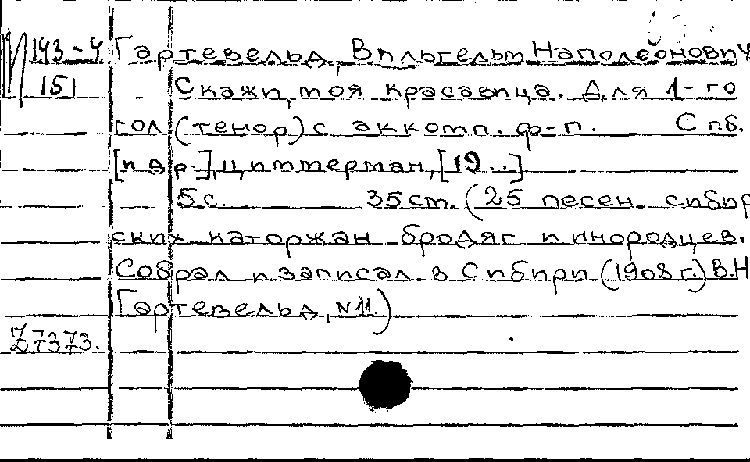 М 143-4 Гартевельд, Вильгельм Наполеонович
151 Скажи, моя красавица. Для 1-го
гол (тенор) с аккомп. ф-п. Спб.
[и др.], Циммерман, [19...]
5 с. 35 см. (25 песен сибир
ских каторжан бродяг и инородцев.
Собрал и записал в Сибири (1908 г.) В.Н
Гартевельд, №11.)
Z7373.